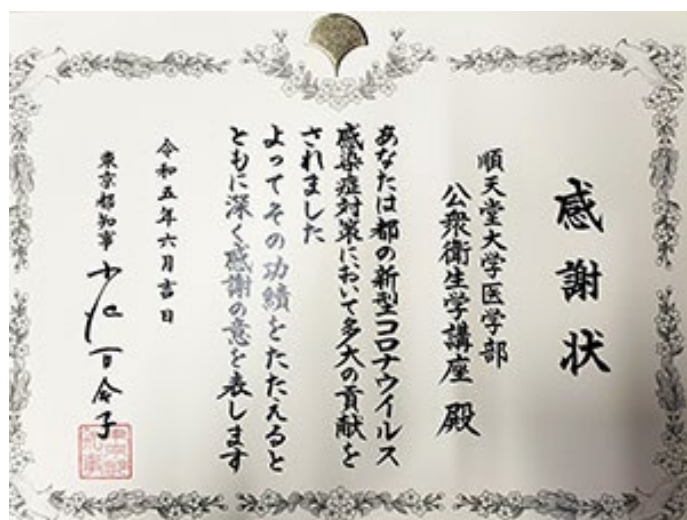 感謝状
順天堂大学医学部
公衆衛生学講座 殿
あなたは都の新型コロナウイルス
感染症対策において多大の貢献を
されました
よってその功績をたたえると
ともに深く感謝の意を表します
令和五年六月吉日
東京都知事 小池百合子